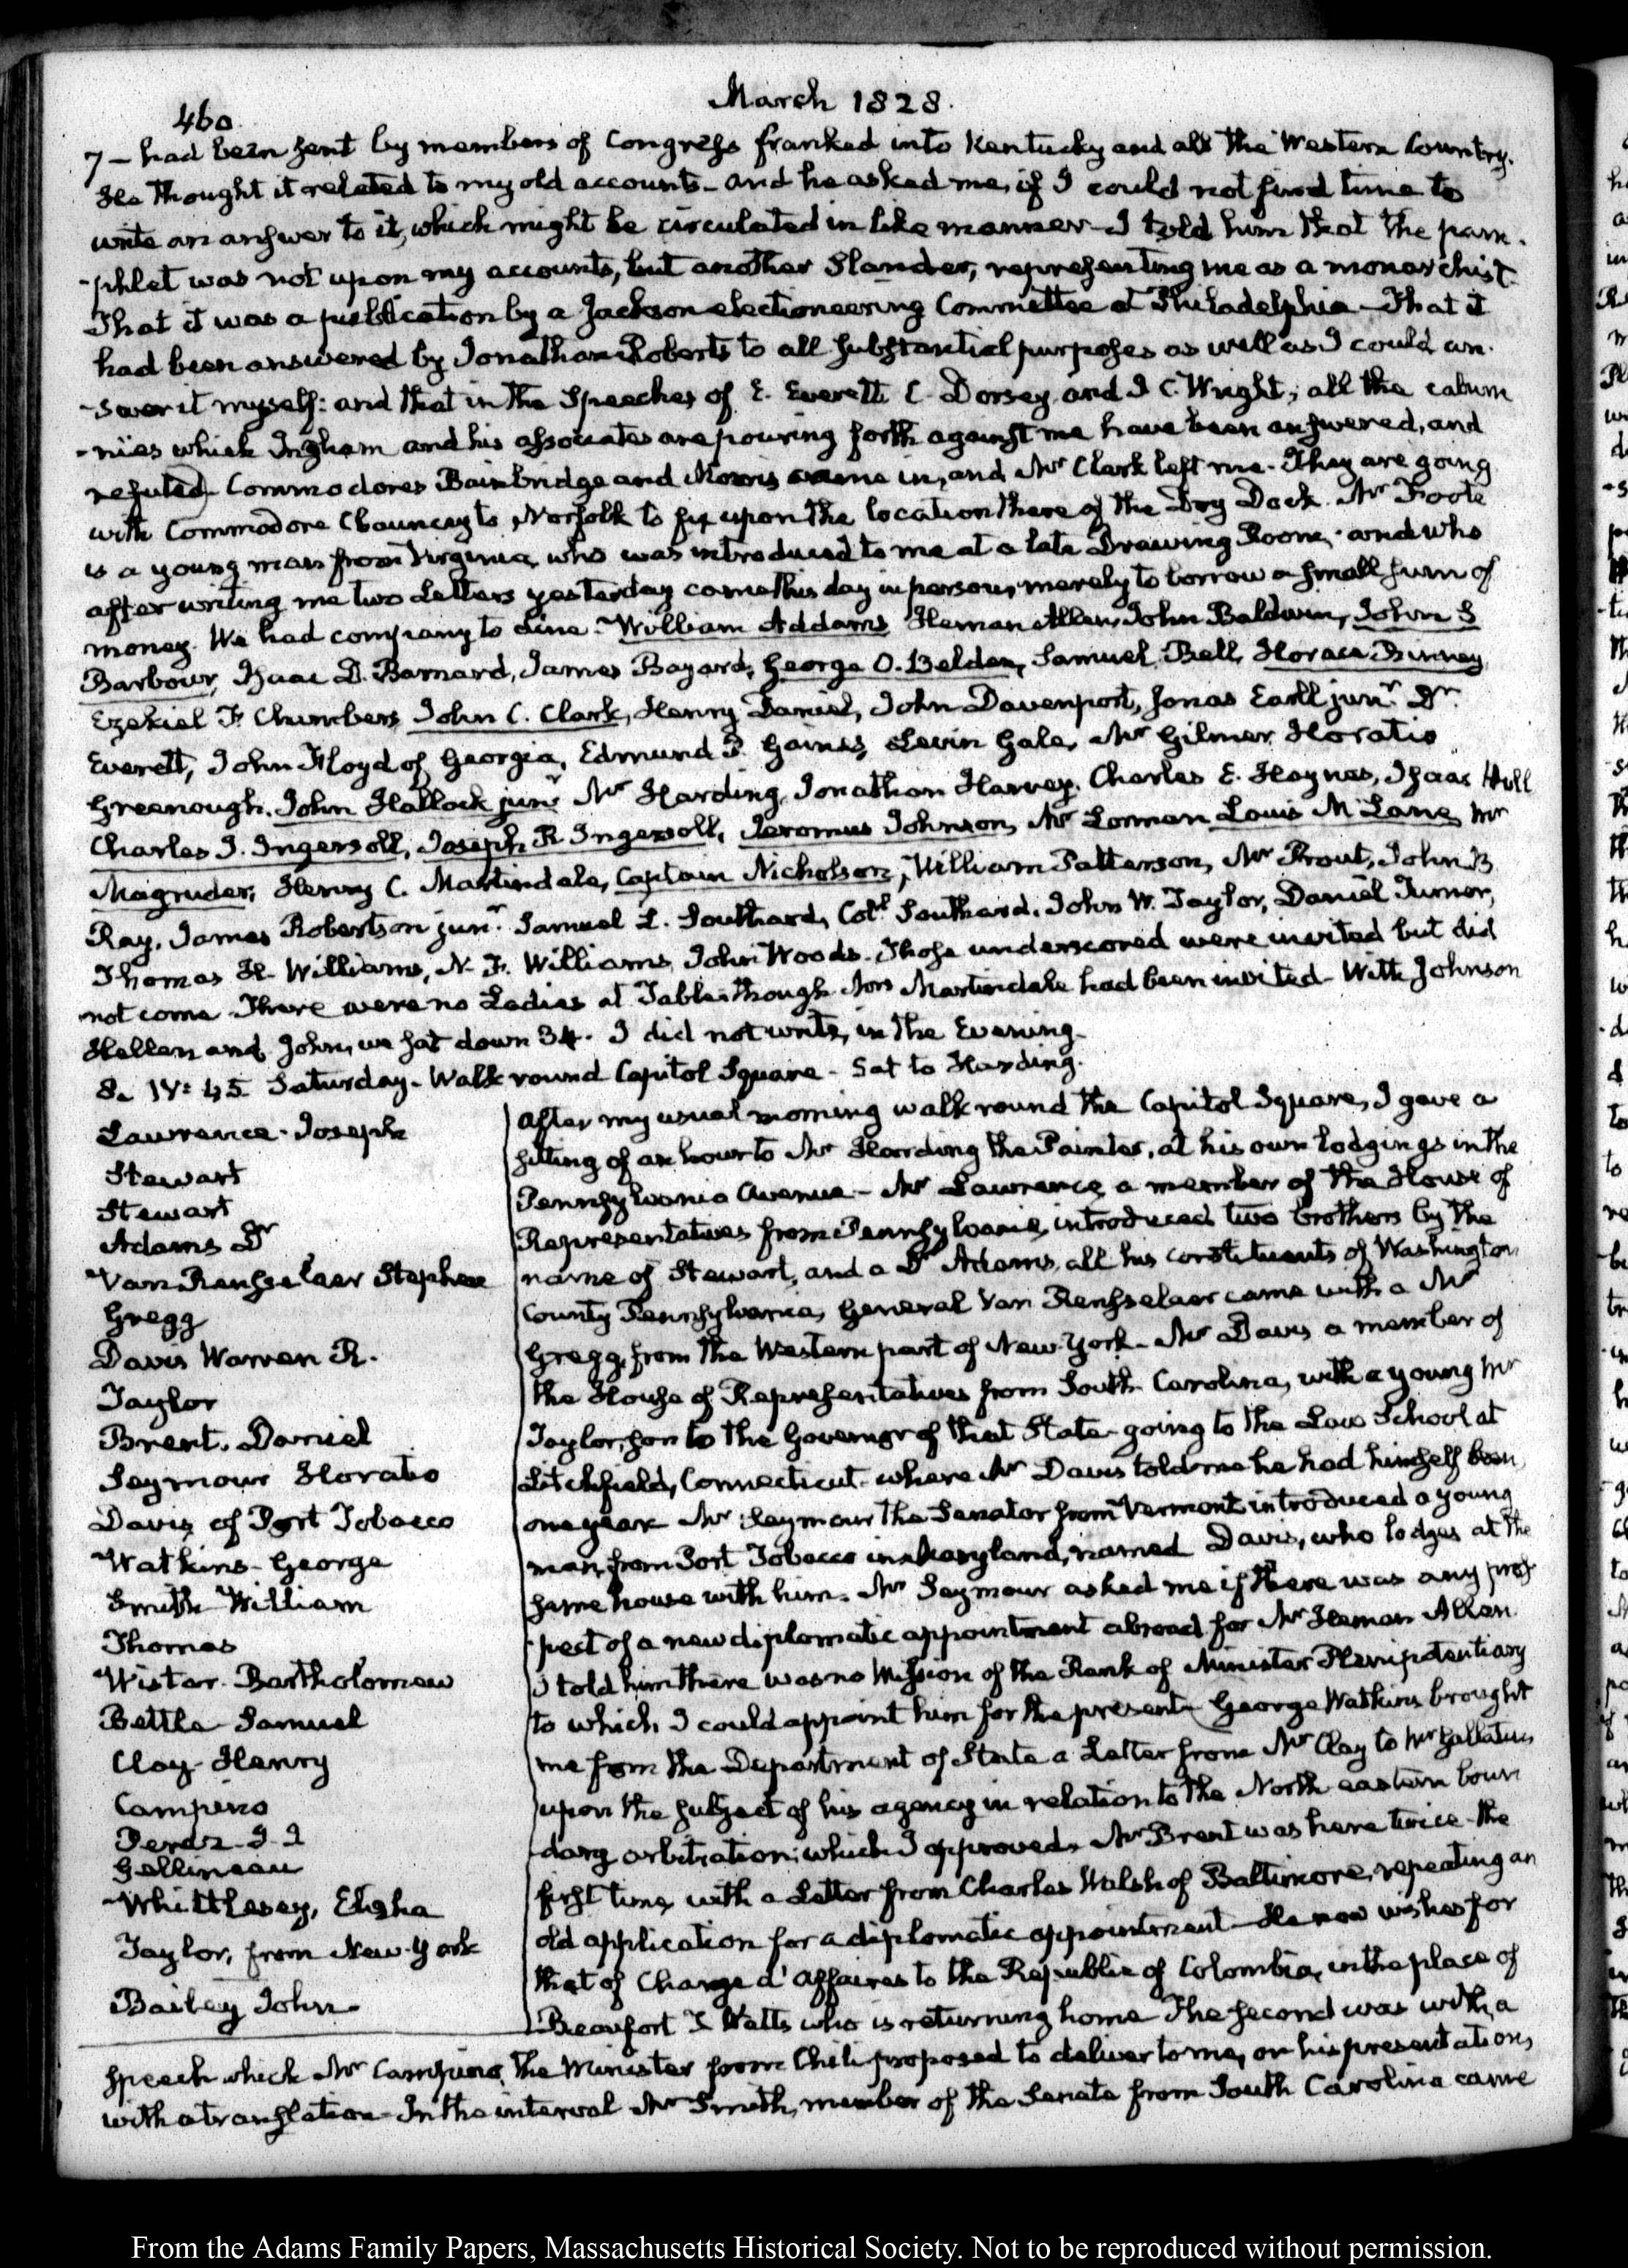 460
March 1828.
7 — had been sent by members of Congress franked into Kentucky and all the Western Country.
He thought it related to my old accounts — and he asked me, if I could not find time to
write an answer to it, which might be circulated in like manner — I told him that the pam-
-phlet was not upon my accounts, but another Slander, representing me as a monarchist
That it was a publication by a Jackson electioneering Committee at Philadelphia — That it
had been answered by Jonathan Roberts to all substantial purposes as well as I could an-
-swer it myself: and that in the Speeches of E. Everett C. Dorsey, and J C. Wright, all the calum
-nies which Ingham and his associates are pouring forth against me have been answered, and
refuted — Commodores Bainbridge and Morris came in, and Mr Clark left me. They are going
with Commodore Chauncey to Norfolk to fix upon the location there of the Dry Dock. Mr Foote
is a young man from Virginia, who was introduced to me at a late Drawing Room, and who
after writing me two Letters yesterday came this day in person, merely to borrow a small sum of
money. We had company to dine. William Addams Heman Allen, John Baldwin, John S
Barbour, Isaac D. Barnard, James Bayard, George O. Belden, Samuel Bell, Horace Binney
Ezekiel F. Chambers, John C. Clark, Henry Daniel, John Davenport, Jonas Earll junr. Dr.
Everett, John Floyd of Georgia, Edmund P. Gaines, Levin Gale, Mr Gilmer, Horatio
Greenough. John Hallock junr Mr Harding, Jonathan Harvey. Charles E. Haynes, Isaac Hull
Charles J. Ingersoll, Joseph R Ingersoll, Jeromus Johnson, Mr Lorman Louis McLane, Mr
Magruder, Henry C. Martindale, Captain Nicholson, William Patterson, Mr Prout, John B
Ray, James Robertson junr. Samuel L. Southard, Coll Southard. John W. Taylor, Daniel Turner,
Thomas H. Williams, N. F. Williams John Woods. Those underscored were invited but did
not come There were no Ladies at Table, though Mrs Martindale had been invited — With Johnson
Hellen and John, we sat down 34. I did not write, in the Evening.
8. IV: 45 Saturday. Walk round Capitol Square. Sat to Harding.
Lawrence. Joseph
Stewart
Stewart
Adams Dr
Van Rensselaer Stephen
Gregg
Davis Warren R.
Taylor
Brent. Daniel
Seymour Horatio
Davis of Port Tobacco
Watkins. George
Smith William
Thomas
Wistar. Bartholomew
Bettle Samuel
Clay Henry
Campino
Gallineau
Whittlesey, Elisha
Taylor, from New-York
Bailey John
After my usual morning walk round the Capitol Square, I gave a
sitting of an hour to Mr Harding the Painter, at his own lodgings in the
Pennsylvania Avenue — Mr Lawrence, a member of the House of
Representatives from Pennsylvania, introduced two brothers by the
name of Stewart, and a Dr Adams, all his constituents of Washington
County Pennsylvania, General Van Rensselaer came with a Mr
Gregg, from the Western part of New-York. Mr Davis a member of
the House of Representatives from South Carolina, with a young Mr
Taylor, son to the Governor of that State going to the Law School at
Litchfield, Connecticut where Mr Davis told me he had himself been
one year. Mr Seymour the Senator from Vermont introduced a young
man, from Port Tobacco in Maryland, named Davis, who lodges at the
same house with him. Mr Seymour asked me if there was any pros
-pect of a new diplomatic appointment abroad for Mr Heman Allen.
I told him there was no Mission of the Rank of Minister Plenipotentiary
to which I could appoint him for the present — George Watkins brought
me from the Department of State a Letter from Mr Clay to Mr Gallatin
upon the subject of his agency in relation to the North eastern boun
-dary arbitration; which I approved. Mr Brent was here twice. the
first time, with a Letter from Charles Walsh of Baltimore, repeating an
old application for a diplomatic appointment — He now wishes for
that of Charge d'Affaires to the Republic of Colombia, in the place of
Beaufort T Watts who is returning home The second was with a
speech which Mr Campino, the Minister from Chili proposed to deliver to me, on his presentation,
with a translation — In the interval Mr Smith, member of the Senate from South Carolina came
From the Adams Family Papers, Massachusetts Historical Society. Not to be reproduced without permission.